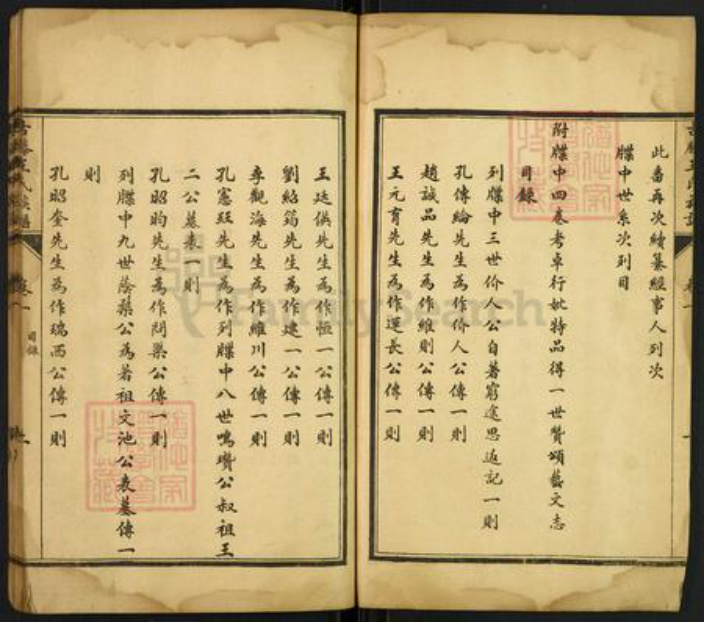 此番再次續纂經事人列次
牒中世系次列目
附牒中四表考卓行妣特品得一世贊頌藝文志
目錄
列牒中三世价人公自著窮途思返記一則
孔傳綸先生為作价人公傳一則
趙誠品先生為作維則公傳一則
王元育先生為作運長公傳一則
王廷俣先生為作恒一公傳一則
劉紹筠先生為作建一公傳一則
李觀海先生為作維川公傳一則
孔憲珏先生為作列牒中八世鳴瓚公叔祖王
二公墓表一則
孔昭昀先生為作閬巢公傳一則
列牒中九世蔭槩公為著祖文池公表墓傳一
則
孔昭奎先生為作瑞西公傳一則
卷一
目錄
FamilySearch